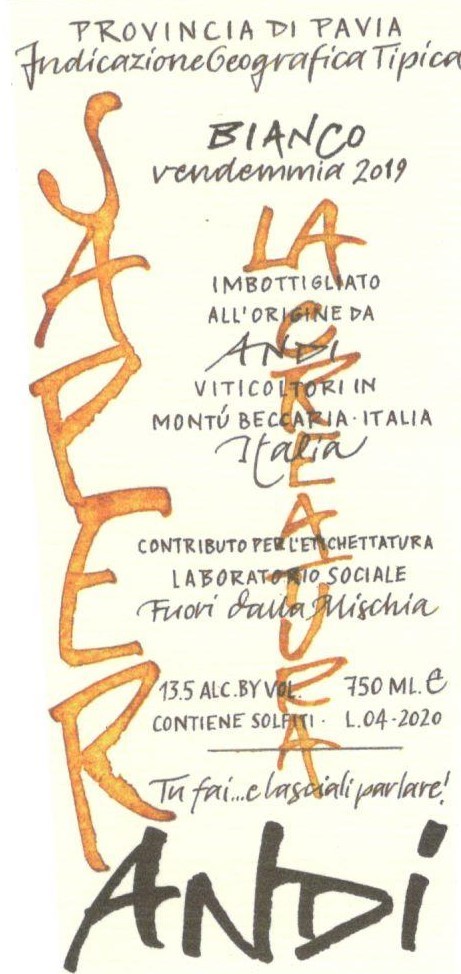 PROVINCIA DI PAVIA
Indicazione Geografica Tipica
BIANCO
vendemmia 2019
SAPER
LA CREATURA
IMBOTTIGLIATO
ALL'ORIGINE DA
ANDI
VITICOLTORI IN
MONTÚ BECCARIA · ITALIA
Italia
CONTRIBUTO PER L'ETICHETTATURA
LABORATORIO SOCIALE
Fuori dalla Mischia
13.5 ALC. BY VOL. 750 ML. e
CONTIENE SOLFITI · L.04-2020
Tu fai...e lasciali parlare!
ANDI